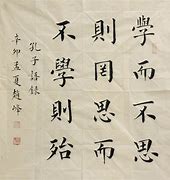 學而不思
則罔思而
不學則殆
孔子語錄
辛卯孟夏趙峰